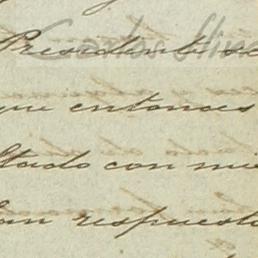 Presidente de
que entonces
stado con mi
an respuesta